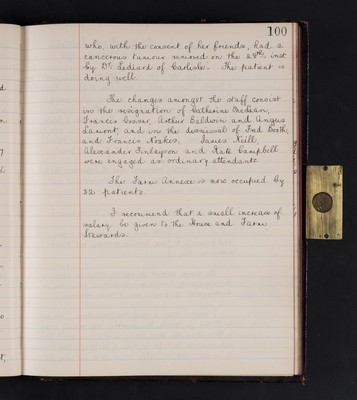 100
who, with the consent of her friends, had a
cancerous tumour removed on the 28th inst
by Dr. Lediard of Carlisle. The patient is
doing well.
The changes amongst the staff consist
in the resignation of Catherine
Frances Arthur Baldwin and Angus
Lamont, and in the dismissal of Fred Booth,
and Francis Noakes. James Neill,
Alexander Finlayson and Kate Campbell
were engaged as ordinary attendants.
The Farm Annexe is now occupied by
32 patients.
I recommend that a small increase of
salary be given to the House and Farm
Stewards.